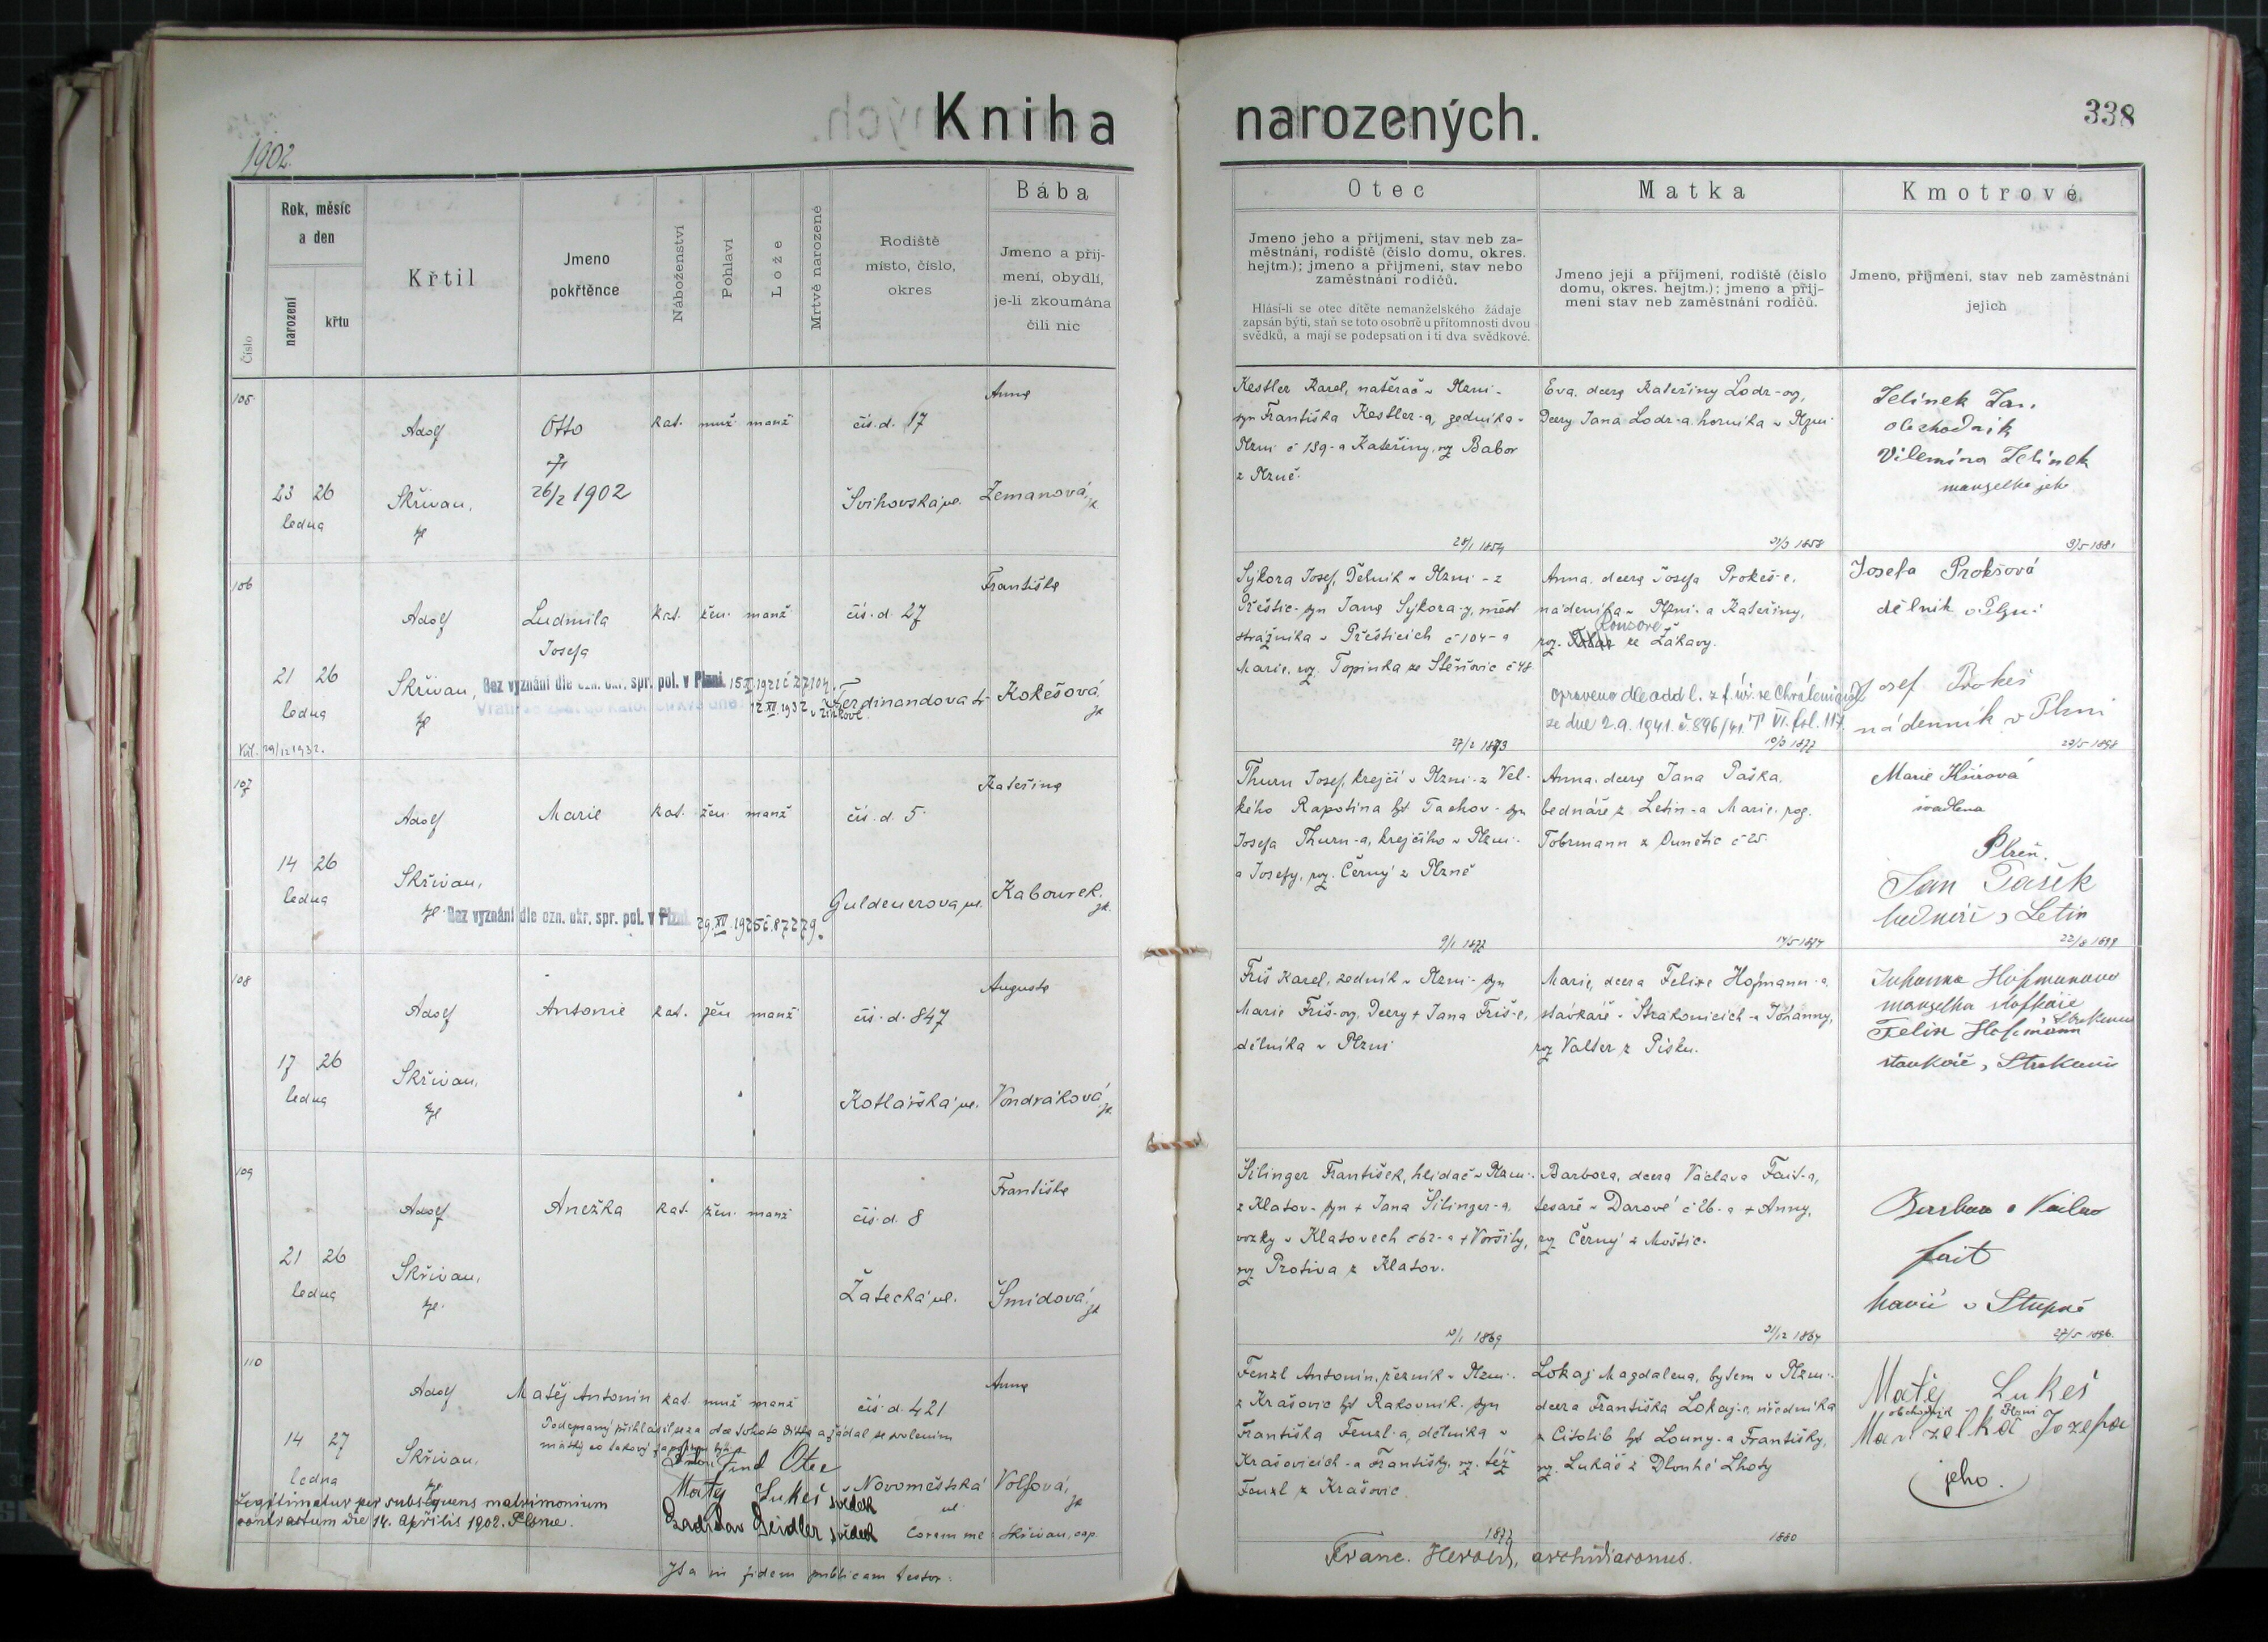 Kniha narozených.
338
1902.
Číslo
Rok, měsíc
a den
narození
křtu
Křtil
Jmeno
pokřtěnce
Náboženství
Pohlaví
Lože
Mrtvě narozené
Rodiště
místo, číslo,
okres
Bába
Jmeno a příj-
mení, obydlí,
je-li zkoumána
čili nic
Otec
Jmeno jeho a příjmení, stav neb za-
městnání, rodiště (číslo domu, okres.
hejtm.); jmeno a příjmení, stav nebo
zaměstnání rodičů.
Hlásí-li se otec dítěte nemanželského žádaje
zapsán býti, staň se toto osobně u přítomnosti dvou
svědků, a mají se podepsati on i ti dva svědkové.
Matka
Jmeno její a příjmení, rodiště (číslo
domu, okres. hejtm.); jmeno a příj-
mení stav neb zaměstnání rodičů.
Kmotrové
Jmeno, příjmení, stav neb zaměstnání
jejich
105
23 26
ledna
Adolf
Skřivan,
Otto
26/2 1902
kat. muž manž
čís. d. 17
Švihovská ul.
Anna
Zemanová,
Kestler Karel, natěrač v Plzni -
syn Františka Kestler-a, zedníka v
Plzni č 139 - a Kateřiny, roz Babor
z Plzně.
28/1 1854
Eva, dcera Kateřiny Lodr-ov,
Dcery Jana Lodr-a horníka v Plzni
21/3 1858
Jelínek Jan,
obchodník
Vilemína Jelínek
manželka jeho
9/5 1881
106
21 26
ledna
Adolf
Skřivan,
Ludmila
Josefa
kat. žen. manž
čís. d. 27
Ferdinandova tř.
Františka
Kokešová,
Bez vyznání dle ozn. okr. spr. pol. v Plzni.
Sýkora Josef, Dělník v Plzni - z
Přeštic - syn Jana Sýkora-y, měst
strážníka v Přešticích č 104 - a
Marie, roz. Topinka ze Stěňovic č 48
Anna, dcera Josefa Prokeš-e,
nádeníka v Plzni - a Kateřiny,
Koncove
roz. ze Žákavy.
opraveno dle odd l. z f. úř. ve Chrá
ze dne 2.9.1941. č. 896/41. T VI. fol. 117.
19/3 1877
Josefa Prokšová
dělník v Plzni
Josef Prokeš
nádenník v Plzni
107
14 26
ledna
Adolf
Skřivan,
Marie
kat. žen. manž
čís. d. 5
Guldenerova ul.
Kateřina
Kabourek,
Bez vyznání dle ozn. okr. spr. pol. v Plzni.
Thurn Josef, krejčí v Plzni - z Vel-
kého Rapotína hjt Tachov - syn
Josefa Thurn-a, krejčího v Plzni -
a Josefy, roz. Černý z Plzně
9/1 1877
Anna, dcera Jana Paška,
bednáře z Letin - a Marie, roz.
Tobrmann z Dunětic č 25.
Marie
švadlena
Plzeň.
Jan Pašek
bednář z Letin
108
17 26
ledna
Adolf
Skřivan,
Antonie
kat. žen manž
čís. d. 847
Kotlářská ul.
Augusta
Vondráková,
Friš Karel, zedník v Plzni - syn
Marie Friš-ov, Dcery + Jana Friš-e,
dělníka v Plzni
Marie, dcera Felixe Hofmann-a
stávkaře v Strakonicích - a Johanny,
roz Valter z Písku.
Johanna Hofmanova
manželka
Felix Hofmann
109
21 26
ledna
Adolf
Skřivan,
Anežka
kat. žen. manž
čís. d. 8
Žatecká ul.
Františka
Šmídová,
Šilinger František, hlídač v Plzni -
z Klatov - syn + Jana Šilinger-a,
vozky v Klatovech č 62 - a + Voršily,
roz Protiva z Klatov.
10/1 1869
Barbora, dcera Václava Fait-a,
tesaře v Darové č 26 - a + Anny,
roz Černý z Moštic.
21/12 1867
Barbora a Václav
fait
110
14 27
ledna
Adolf
Skřivan,
Matěj Antonín
kat. muž manž
čís. d. 421
Novoměstská
ul
Anna
Volfová,
Podepsaný přihlásil se za otce tohoto dítěte a žádal se svolením
Otec
Matěj Lukeš svědek
Ladislav Seidler svědek
Coram me: Skřivan, cap.
Legitimatur per subsequens matrimonium
contractum die 14. Aprilis 1902. Plsnae.
Ita in fidem publicam testor:
Franc. Herold, archidiaconus.
Fenzl Antonín, řezník v Plzni -
z Krašovic hjt Rakovník - syn
Františka Fenzl-a, dělníka v
Krašovicích - a Františky, roz. též
Fenzl z Krašovic.
1877
Lokaj Magdalena, bytem v Plzni -
dcera Františka Lokaj-e, úředníka
z Citolib hjt Louny - a Františky,
roz. Lukáš z Dlouhé Lhoty
1880
Matěj Lukeš
obchodník Plzni
Manželka Jozefa
jeho.